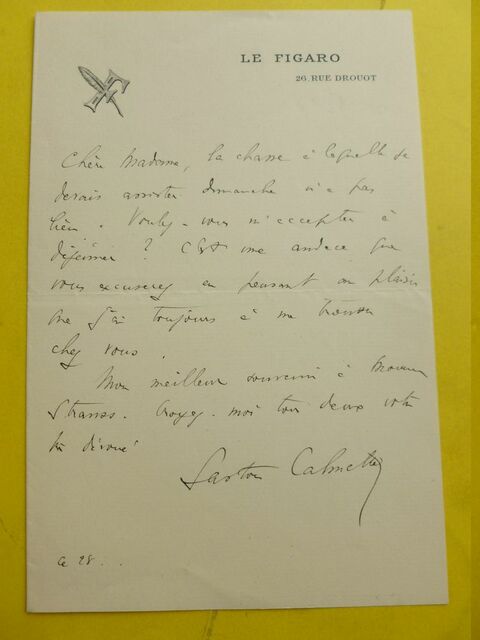 LE FIGARO
26, RUE DROUOT
Chère Madame, la chasse à laquelle je
devais assister dimanche n'a pas
lieu. Voulez-vous m'accepter à
déjeuner ? C'est une audace que
vous excuserez en pensant au plaisir
que j'ai toujours à me trouver
chez vous.
Mon meilleur souvenir à Monsieur
Straus. Croyez-moi tous deux votre
très dévoué
Gaston Calmette
Ce 28...